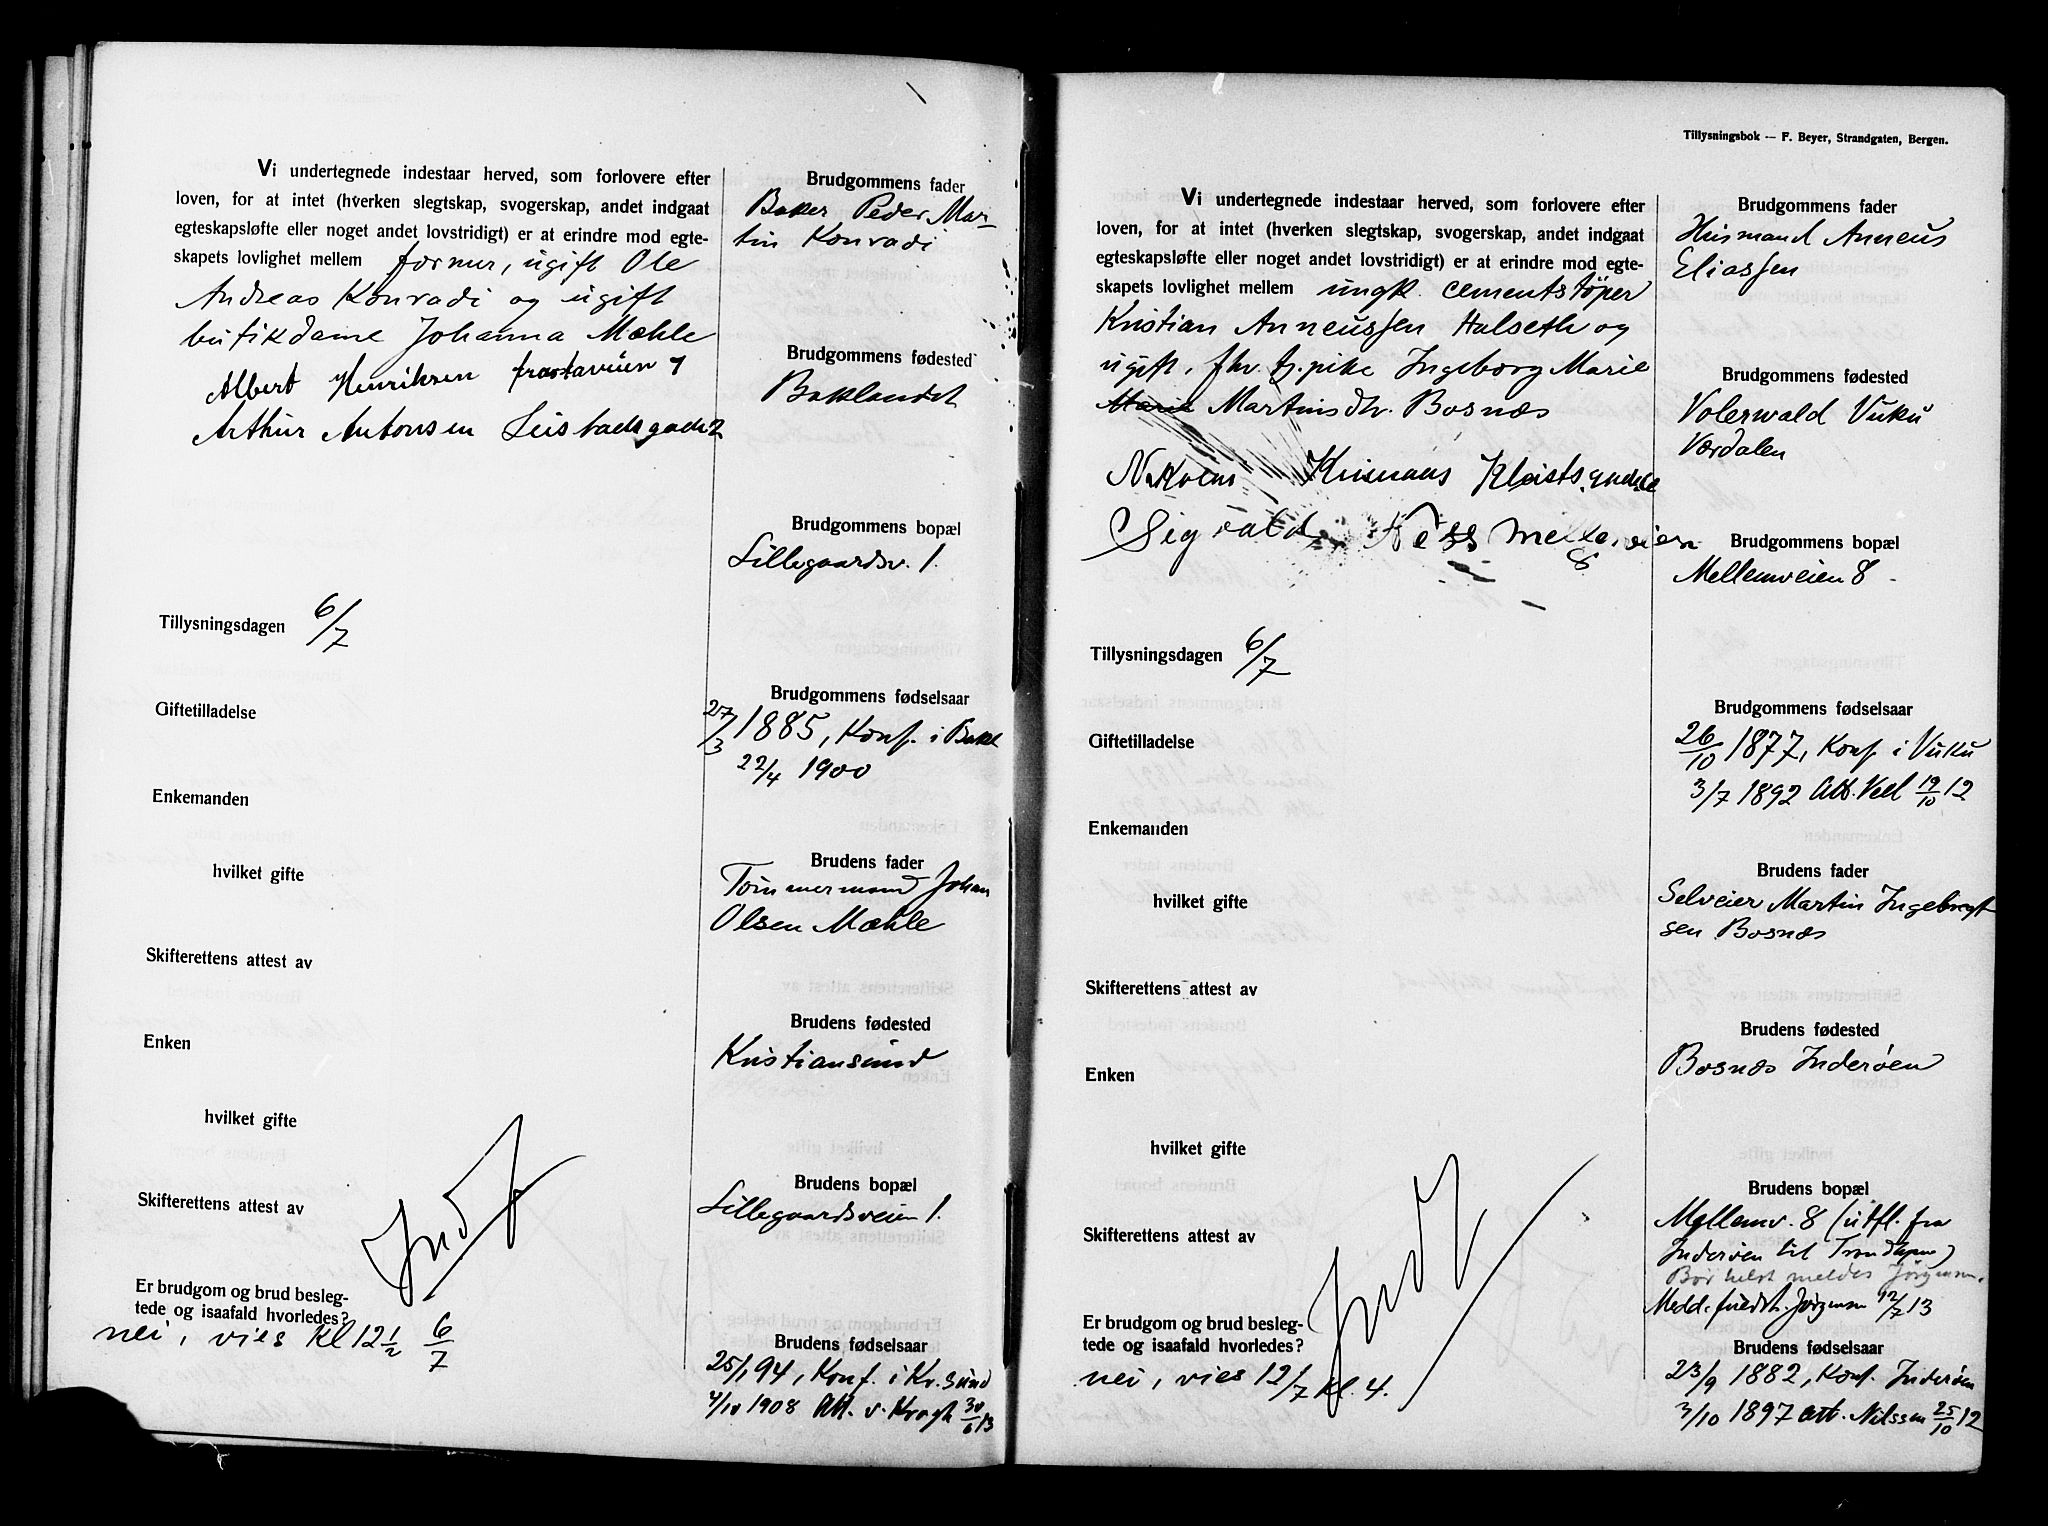 Vi undertegnede indestaar herved, som forlovere efter
loven, for at intet (hverken slegtskap, svogerskap, andet indgaat
egteskapsløfte eller noget andet lovstridigt) er at erindre mod egte-
skapets lovlighet mellem formur, ugift Ole
Andreas Konradi og ugift
butikdame Johanna Mæhle
Albert Henriksen frostaveien 7
Arthur Antonsen
Tillysningsdagen 6/7
Giftetilladelse
Enkemanden
hvilket gifte
Skifterettens attest av
Enken
hvilket gifte
Skifterettens attest av
Indf
Er brudgom og brud besleg-
tede og isaafald hvorledes?
nei, vies kl 12 1/2 6/7
Brudgommens fader
Baker Peder Mar-
tin Konradi
Brudgommens fødested
Baklandet
Brudgommens bopæl
Lillegaardsv. 1.
Brudgommens fødselsaar
27/3 1885, Konf. i Bakl
22/4 1900
Brudens fader
Tømmermand Johan
Olsen Mæhle
Brudens fødested
Kristiansund
Brudens bopæl
Lillegaardsveien 1.
Brudens fødselsaar
25/1 94, Konf. i Kr.sund
4/10 1908 Att. v. Krogh 30/6 13
Tillysningsbok — F. Beyer, Strandgaten, Bergen.
Vi undertegnede indestaar herved, som forlovere efter
loven, for at intet (hverken slegtskap, svogerskap, andet indgaat
egteskapsløfte eller noget andet lovstridigt) er at erindre mod egte-
skapets lovlighet mellem ungk. cementstøper
Kristian Anneussen Halseth og
ugift, fhv. tj.pike Ingeborg Marie
Marie Martinsdtr. Bosnæs
Sigvald Ness Mellemveien
8
Tillysningsdagen 6/7
Giftetilladelse
Enkemanden
hvilket gifte
Skifterettens attest av
Enken
hvilket gifte
Skifterettens attest av
Indf
Er brudgom og brud besleg-
tede og isaafald hvorledes?
nei, vies 12/7 kl. 4.
Brudgommens fader
Husmand Anneus
Eliassen
Brudgommens fødested
Volerwald Vuku
Værdalen
Brudgommens bopæl
Mellemveien 8
Brudgommens fødselsaar
26/10 1877, Konf i Vuku
3/7 1892 Att. Veel 19/10 12
Brudens fader
Selveier Martin Ingebrigt
sen Bosnæs
Brudens fødested
Bosnæs Inderøen
Brudens bopæl
Mellemv. 8 (utfl. fra
Inderøen til Trondhjem)
Bør helst meldes Jørgensen.
Medd. Jørgensen 12/7 13
Brudens fødselsaar
23/9 1882, Konf. Inderøen
3/10 1897 Att. Nilssen 25/10 12